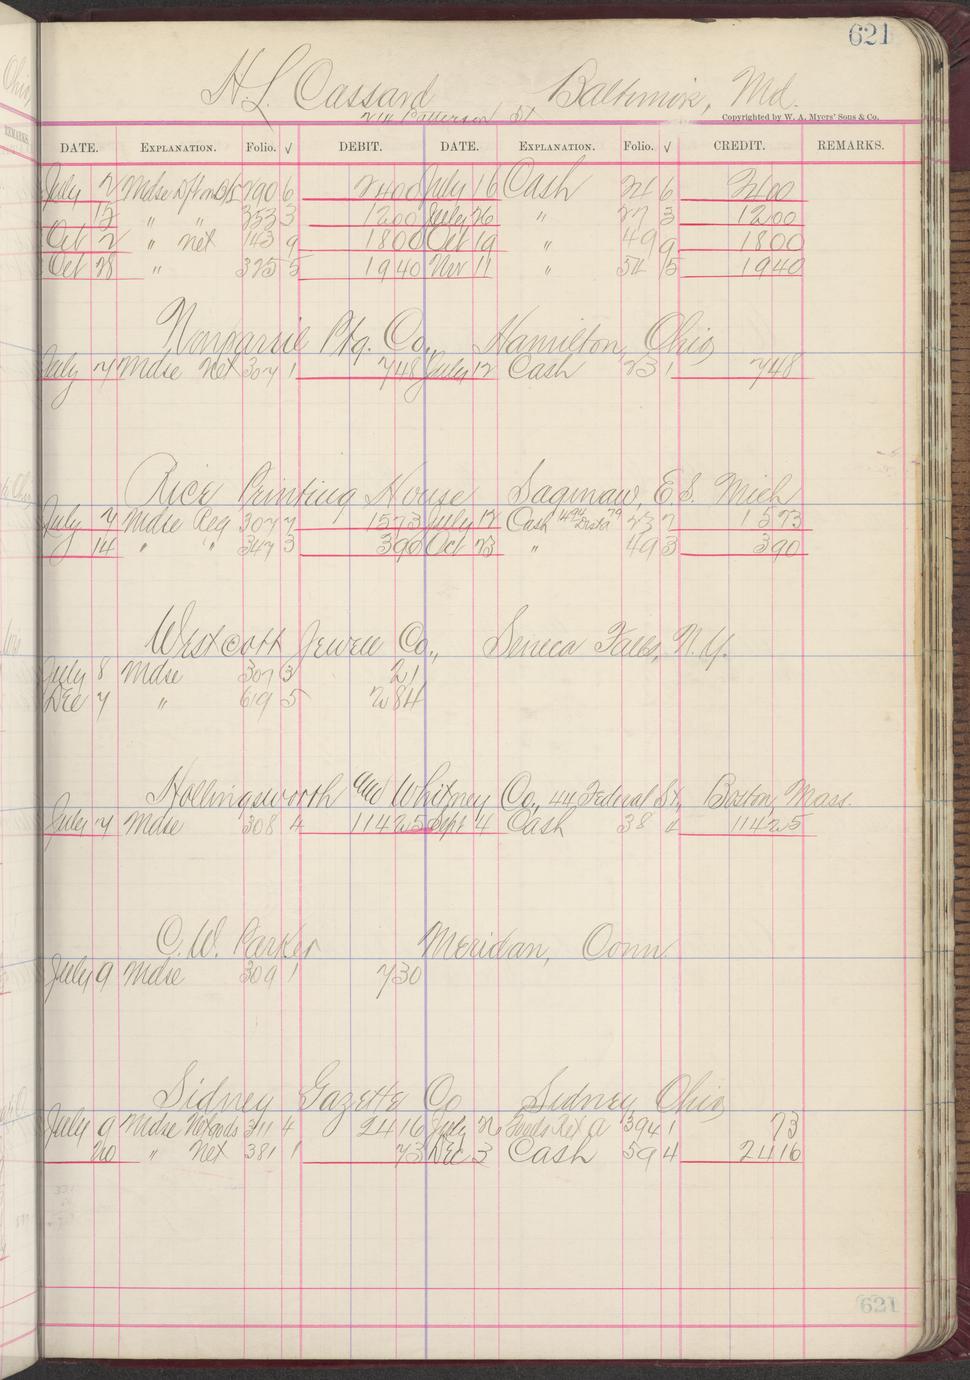 621
H. L. Cassard Baltimore, Md.
Patterson St
Copyrighted by W. A. Myers' Sons & Co.
DATE. EXPLANATION. Folio. √ DEBIT. DATE. EXPLANATION. Folio. √ CREDIT. REMARKS.
July 2 Mdse 290 6 2400 July 16 Cash 24 6 2400
12 " " 353 3 1200 July 26 " 27 3 1200
Oct 2 " Net 143 9 1800 Oct 19 " 49 9 1800
Oct 28 " 325 5 1940 Nov 11 " 54 5 1940
Nonparriel Ptg. Co., Hamilton, Ohio
July 7 Mdse Net 307 1 748 July 12 Cash 23 1 748
Rice Printing House Saginaw, E.S. Mich
July 7 Mdse Reg 307 2 1573 July 12 Cash 1494 Dista 79 23 2 1573
14 " " 347 3 390 Oct 23 " 49 3 390
Westcott Jewell Co., Seneca Falls, N.Y.
July 8 Mdse 307 3 21
Dec 7 " 619 5 284
Hollingsworth and Whitney Co., 44 Federal St, Boston, Mass.
July 7 Mdse 308 4 11425 Sept 4 Cash 38 " 11425
C. W. Parker Meridan, Conn.
July 9 Mdse 309 1 730
Sidney Gazette Co Sidney Ohio
July 9 Mdse Net gods 311 4 2416 July 26 Goods Ret'd 394 1 73
20 " Net 381 1 73 Dec 3 Cash 59 4 2416
621